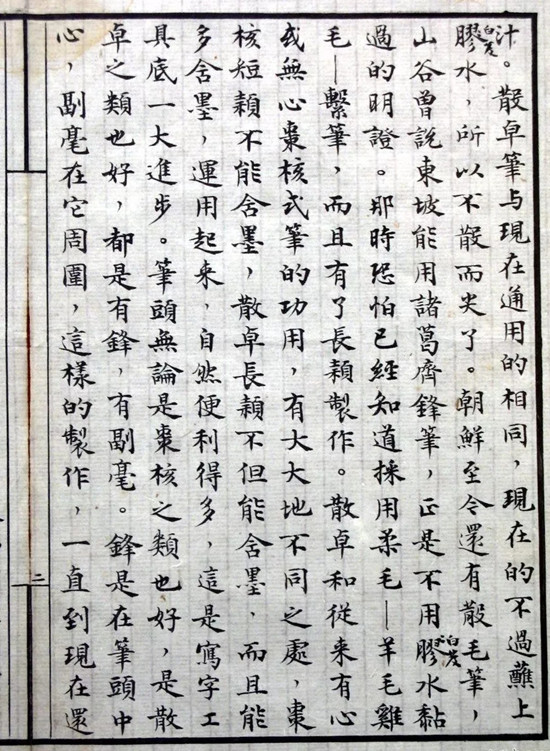 汁。散卓筆与現在通用的相同，現在的不過蘸上
白芨膠水，所以不散而尖了。朝鮮至今還有散毛筆，
山谷曾説東坡能用諸葛齊鋒筆，正是不用膠水和白芨黏
過的明證。那時恐怕已經知道採用柔毛—羊毛雞
毛—繫筆，而且有了長穎製作。散卓和從来有心
或無心棗核式筆的功用，有大大地不同之處，棗
核短穎不能含墨，散卓長穎不但能含墨，而且能
多含墨，運用起来，自然便利得多，這是寫字工
具底一大進步。筆頭無論是棗核之類也好，是散
卓之類也好，都是有鋒，有副毫。鋒是在筆頭中
心，副毫在它周圍，這樣的製作，一直到現在還
二